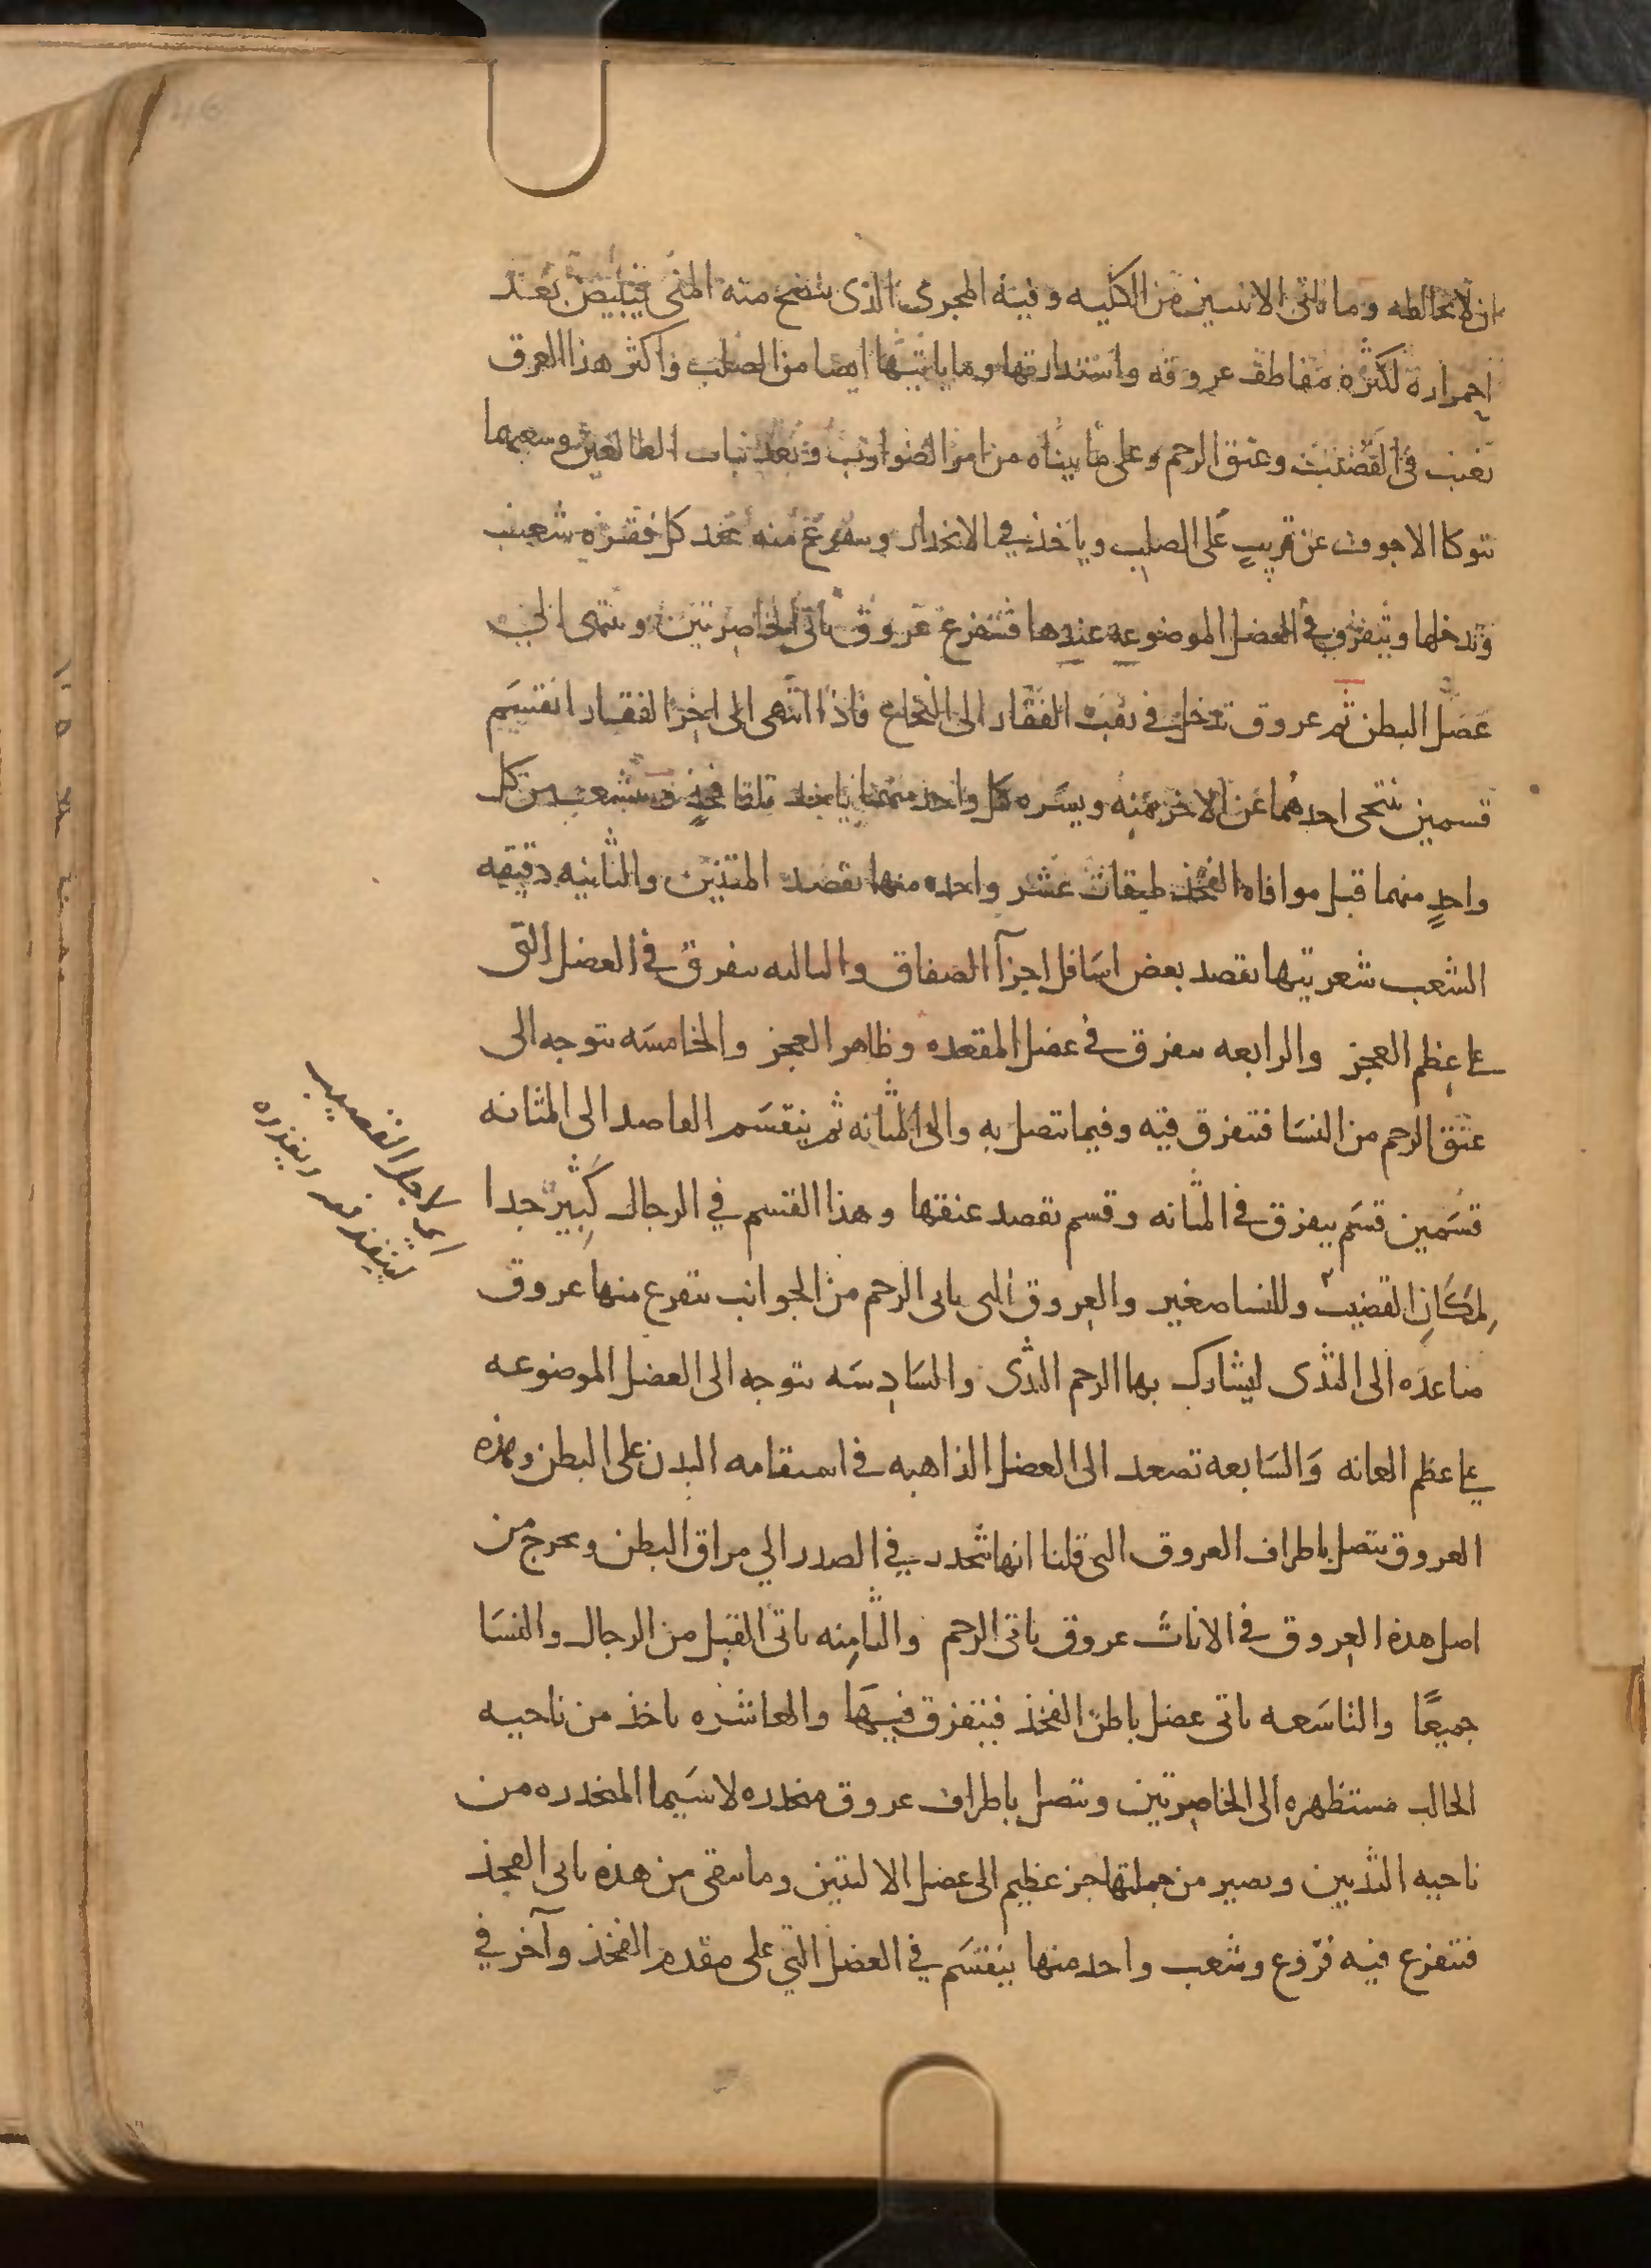 ان لا تخالطه وما ياتى الانثيين من الكليه وفيه المجرى الذى ينضج منه المنى فيبيض بعد
احمراره لكثره معاطف عروقه واستدارتها وما ياتيها ايضا من الصلب واكثر هذا العرق
تغيب فى القضيب وعنق الرحم وعلى ما بيناه من امر الضوارب وبعد نبات الطالعين وشعبهما
يتوكا الاجوف عن قريب على الصلب وياخذ في الانحدار ويتفرع منه عند كل فقره شعيب
وتدخلها ويتفرق في العضل الموضوعه عندها فتتفرع عروق ياتى الخاصرتين وينتهى الى
عضل البطن ثم عروق تدخل فى ثقب الفقار الى النخاع فاذا انتهى الى اخر الفقار انقسم
قسمين يتنحى احدهما عن الاخر يمنه ويسره كل واحد منهما ياخذ تلقا فخذ ويتشعب من كل
واحد منهما قبل موافاه الفخذ طبقات عشر واحده منها تقصد المتنين والثانيه دقيقه
الشعب شعريتها تقصد بعض اسافل اجزآ الصفاق والثالثه يتفرق فى العضل التى
على عظم العجز والرابعه يتفرق فى عضل المقعده وظاهر العجز والخامسه يتوجه الى
عنق الرحم من النسا فتتفرق فيه وفيما تتصل به والى المثانه ثم ينقسم القاصد الى المثانه
قسمين قسم يتفرق فى المثانه وقسم تقصد عنقها وهذا القسم في الرجال كثير جدا
لمكان القضيب وللنسا صغير والعروق التى ياتى الرحم من الجوانب يتفرع منها عروق
صاعده الى الثدى ليشارك بها الرحم الثدى والسادسه يتوجه الى العضل الموضوعه
على عظم العانه والسابعه تصعد الى العضل الذاهبه فى استقامه البدن على البطن وهذه
العروق يتصل باطراف العروق التى قلنا انها تنحدر في الصدر الي مراق البطن ويخرج من
اصل هذه العروق فى الاناث عروق ياتى الرحم والثامنه ياتى القبل من الرجال والنسا
جميعًا والتاسعه ياتى عضل باطن الفخذ فيتفرق فيها والعاشره ياخذ من ناحيه
الحالب مستظهره الى الخاصرتين ويتصل باطراف عروق منحدره لا سيما المنحدره من
ناحيه الثديين ويصير من جملتها جز عظيم الى عضل الاليتين وما يبقى من هذه ياتى الفخذ
فتتفرع فيه فروع وشعب واحد منها ينقسم في العضل التي على مقدم الفخذ وآخر في
اى لاجل القضيب